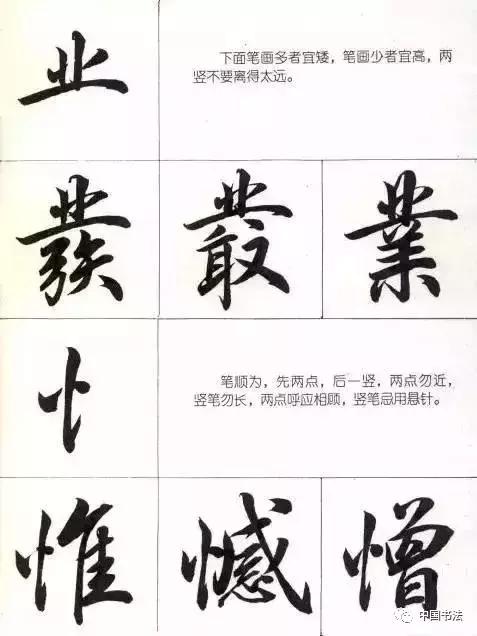 业
下面笔画多者宜矮，笔画少者宜高，两
竖不要离得太远。
叢 業
忄
笔顺为，先两点，后一竖，两点勿近，
竖笔勿长，两点呼应相顾，竖笔忌用悬针。
惟 憾 憎
中国书法